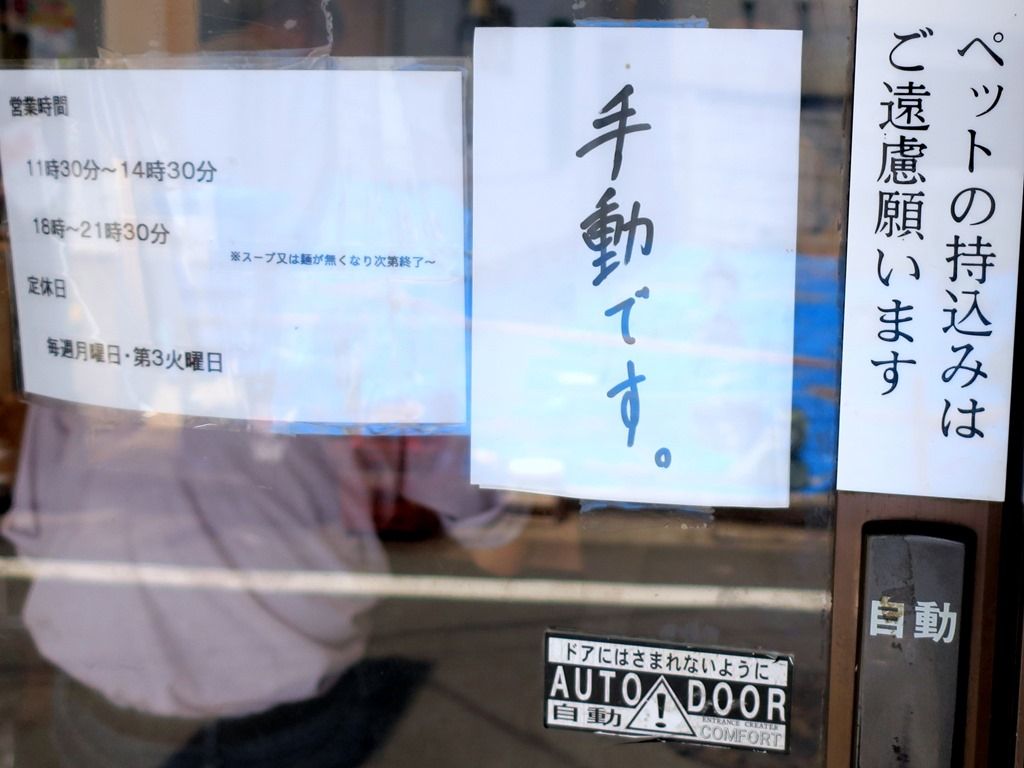 営業時間
11時30分～14時30分
18時～21時30分
※スープ又は麺が無くなり次第終了～
定休日
毎週月曜日・第3火曜日
手動です。
ペットの持込みは
ご遠慮願います
自動
ドアにはさまれないように
AUTO DOOR
自動
ENTRANCE CREATER
COMFORT